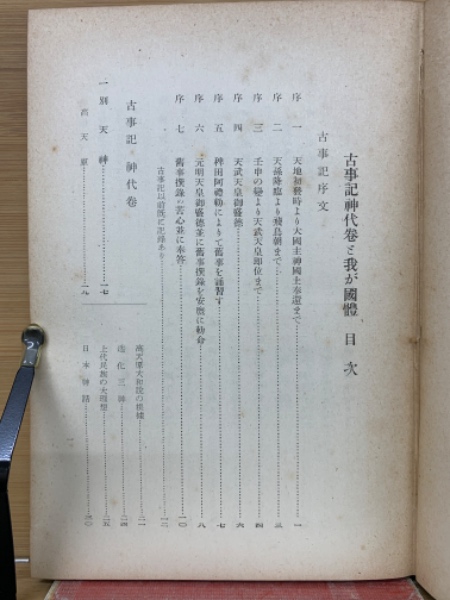 古事記神代卷と我が國體 目次
古事記序文
序 一 天地初發時より大國主神國土奉還まで 一
序 二 天孫降臨より飛鳥朝まで 三
序 三 壬申の變より天武天皇卽位まで 四
序 四 天武天皇御盛德 六
序 五 稗田阿禮勅によりて舊事を誦習す 七
序 六 元明天皇御盛德並に舊事撰錄を安麿に勅命 八
序 七 舊事撰錄の苦心並に奉答 一〇
古事記以前既に記錄あり 一二
古事記 神代卷
一 別天神 一七
高天原 一九
高天原大和說の根據 二一
造化三神 二四
上代民族の大理想 二五
日本神話 三〇
一